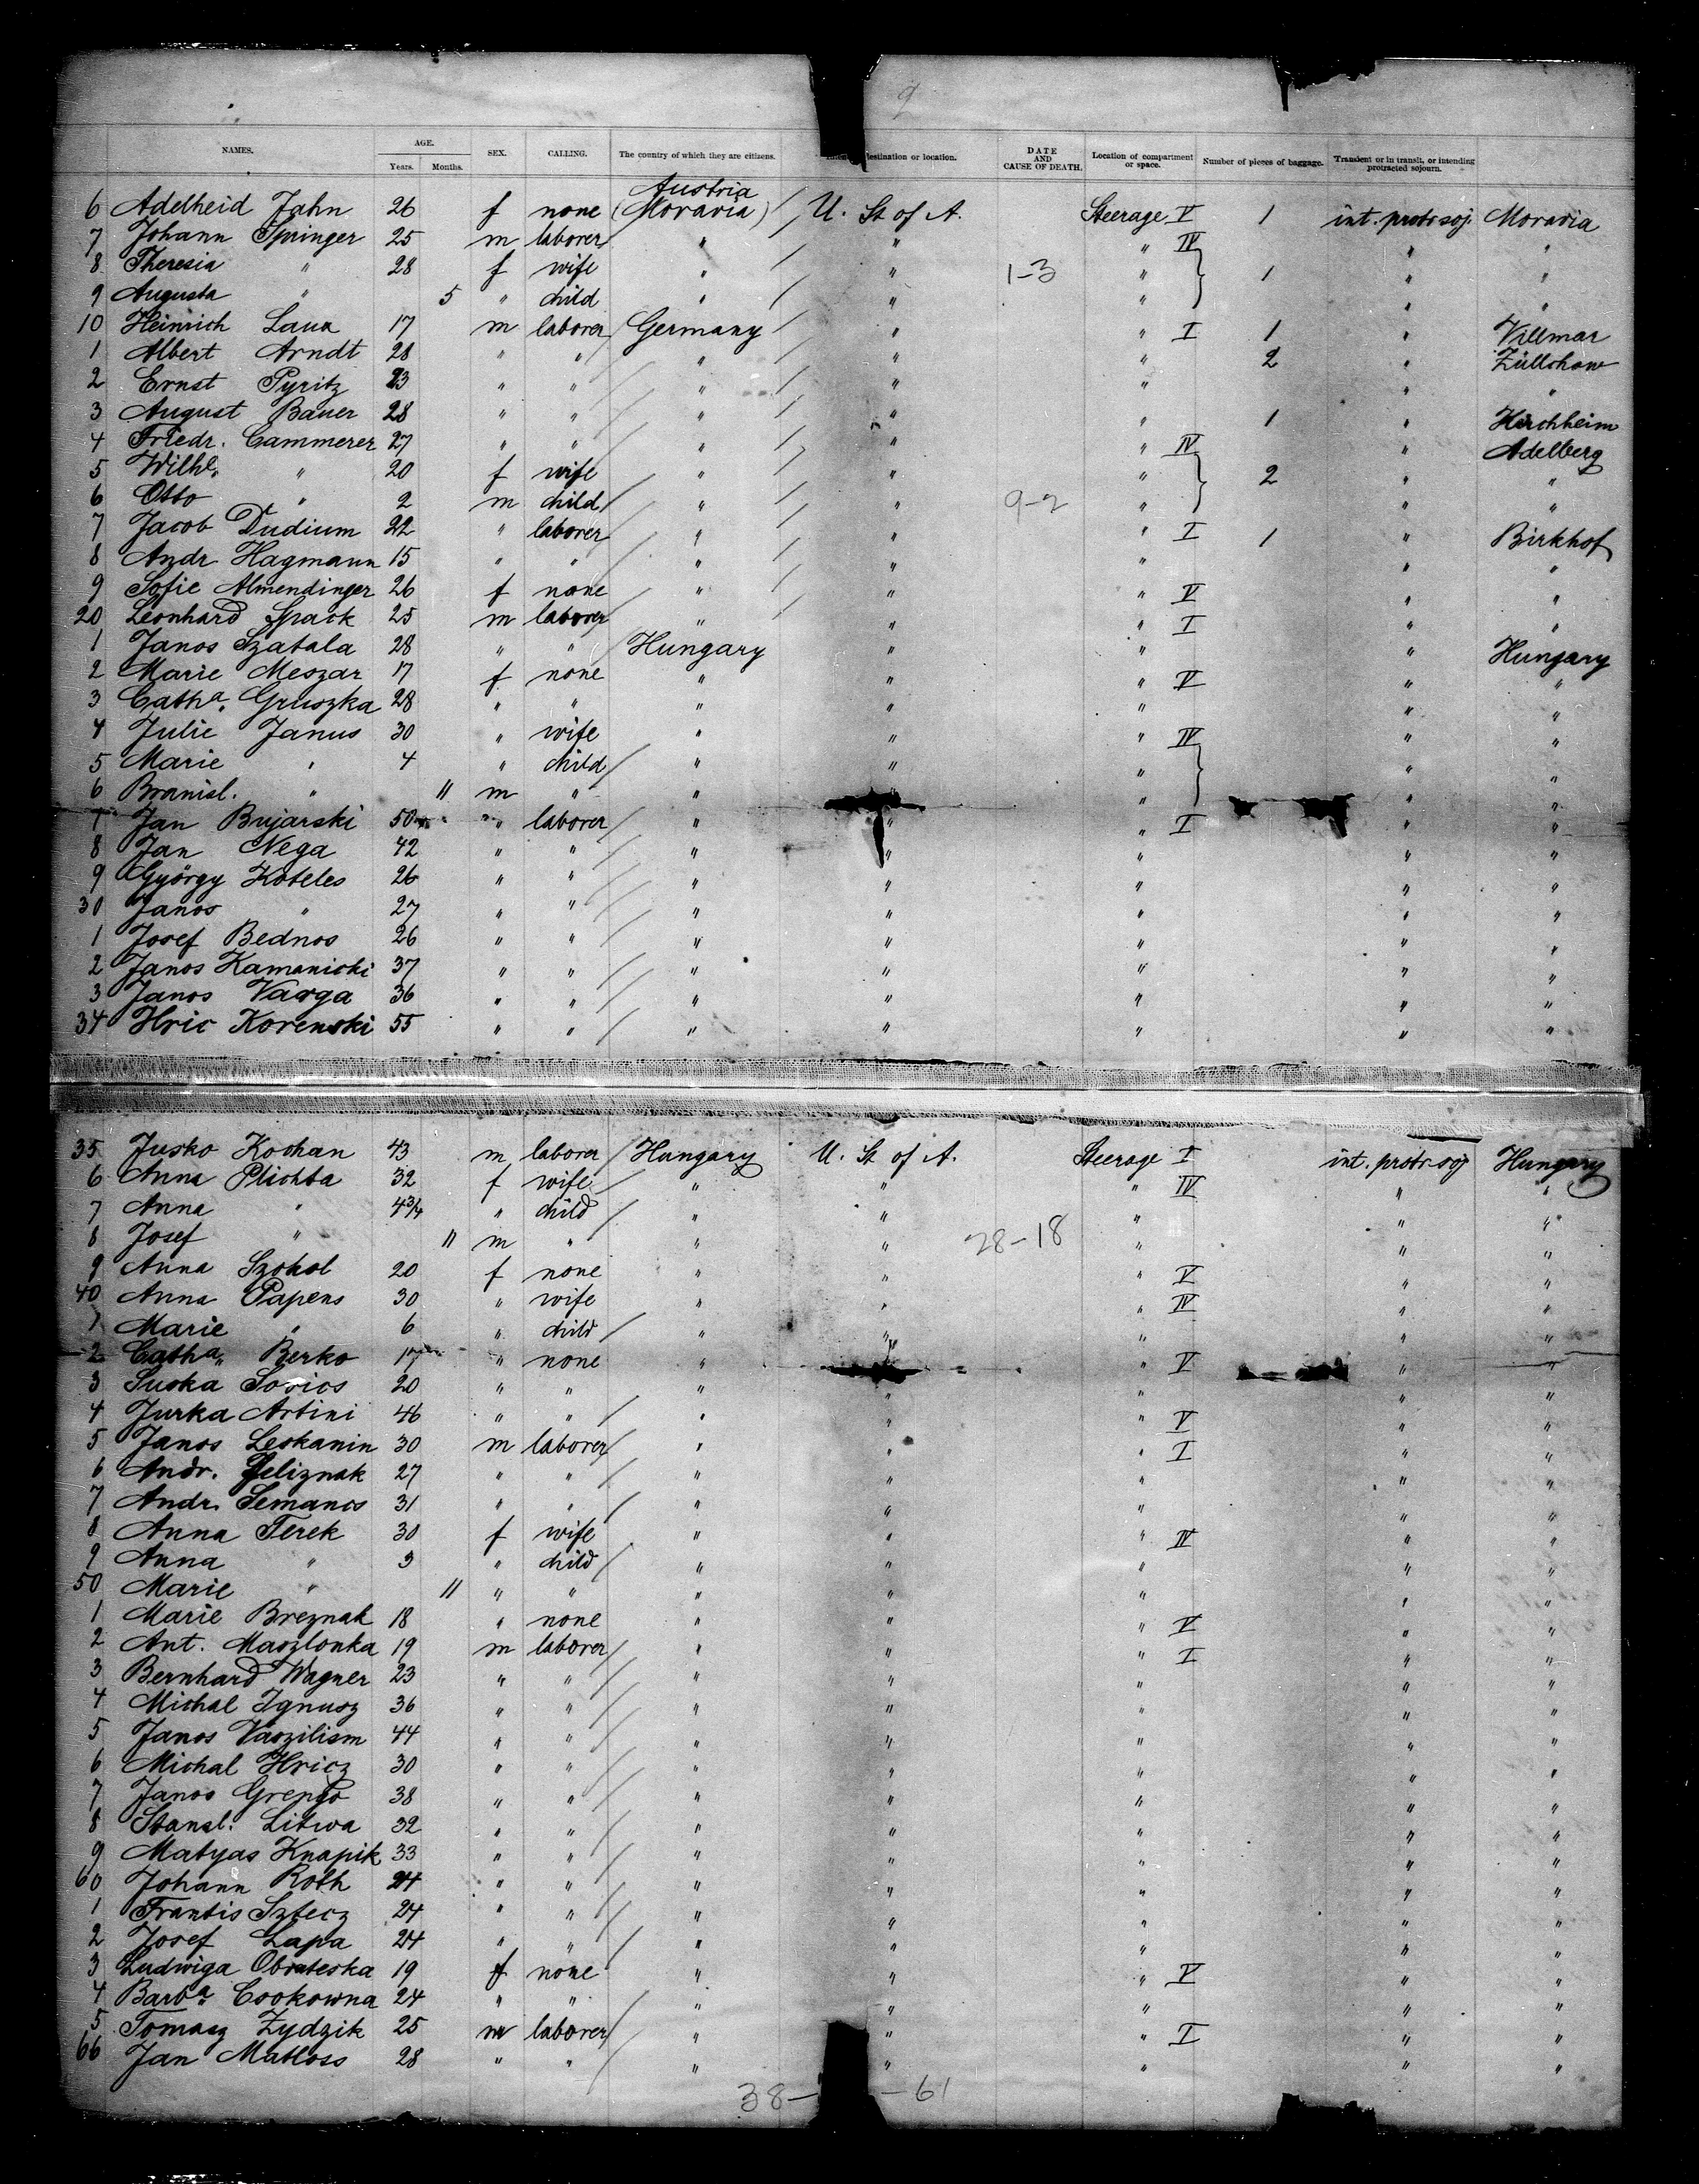 9
NAMES. AGE. Years. Months. SEX. CALLING. The country of which they are citizens. destination or location. DATE AND CAUSE OF DEATH. Location of compartment or space. Number of pieces of baggage. Transient or in transit, or intending protracted sojourn.
6 Adelheid Jahn 26 f none Austria (Moravia) U. St of A. Steerage V 1 int. protr soj. Moravia
7 Johann Springer 25 m laborer " " " IV " "
8 Theresia " 28 f wife " " 1-3 " 1 " "
9 Augusta " 5 " child " " " " "
10 Heinrich Laux 17 m laborer Germany " " I 1 " Villmar
1 Albert Arndt 28 " " " " " 2 " Züllchow
2 Ernst Pyritz 23 " " " " " " "
3 August Bauer 28 " " " " " 1 " Kirchheim
4 Friedr. Cammerer 27 " " " " " IV " Adelberg
5 Wilhe. " 20 f wife " " " 2 " "
6 Otto " 2 m child " " 9-2 " " "
7 Jacob Dudium 22 " laborer " " " I 1 " Birkhof
8 Andr. Hagmann 15 " " " " " " "
9 Sofie Almendinger 26 f none " " " V " "
20 Leonhard Spack 25 m laborer " " " I " "
1 Janos Szatala 28 " " Hungary " " " Hungary
2 Marie Meszar 17 f none " " " V " "
3 Catha. Gruszka 28 " " " " " " "
4 Julie Janus 30 " wife " " " IV " "
5 Marie " 4 " child " " " " "
6 Branisl. " 11 m " " " " " "
7 Jan Bujarski 50 " laborer " " " I " "
8 Jan Nega 42 " " " " " " "
9 György Koteles 26 " " " " " " "
30 Janos " 27 " " " " " " "
1 Josef Bednos 26 " " " " " " "
2 Janos Kamanicki 37 " " " " " " "
3 Janos Varga 36 " " " " " " "
34 Hric Korenski 55 " " " " " " "
35 Jusko Kochan 43 m laborer Hungary U. St of A. Steerage I int. protr soj Hungary
6 Anna Plichta 32 f wife " " " IV " "
7 Anna " 4¾ " child " " " " "
8 Josef " 11 m " " " 28-18 " " "
9 Anna Szokol 20 f none " " " V " "
40 Anna Papens 30 " wife " " " IV " "
1 Marie " 6 " child " " " " "
2 Catha. Berko 17 " none " " " V " "
3 Suska Sovics 20 " " " " " "
4 Jurka Artini 46 " " " " " V " "
5 Janos Leskanin 30 m laborer " " " I " "
6 Andr. Zeliznak 27 " " " " " " "
7 Andr. Semancs 31 " " " " " " "
8 Anna Terek 30 f wife " " " IV " "
9 Anna " 3 " child " " " " "
50 Marie " 11 " " " " " " "
1 Marie Breznak 18 " none " " " V " "
2 Ant. Maszlonka 19 m laborer " " " I " "
3 Bernhard Wagner 23 " " " " " " "
4 Michal Ignusz 36 " " " " " " "
5 Janos Vaszilism 44 " " " " " " "
6 Michal Hricz 30 " " " " " " "
7 Janos Grengo 38 " " " " " " "
8 Stansl. Litwa 32 " " " " " " "
9 Matyas Knapik 33 " " " " " " "
60 Johann Roth 24 " " " " " " "
1 Frantis Sztecz 24 " " " " " " "
2 Josef Lapa 24 " " " " " " "
3 Ludwiga Obrateska 19 f none " " " V " "
4 Barba. Cookowna 24 " " " " " " "
5 Tomasz Zydzik 25 m laborer " " " I " "
66 Jan Matloss 28 " " " " " " "
38- -61